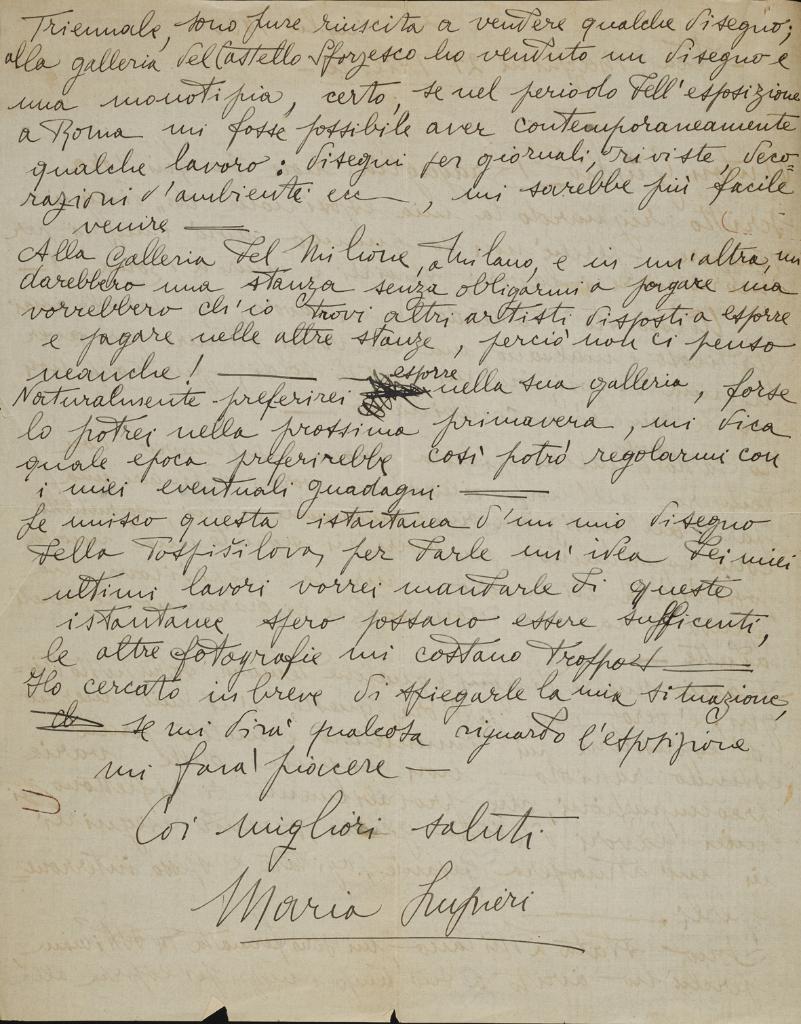 Triennale, sono pure riuscita a vendere qualche disegno;
alla galleria del Castello Sforzesco ho venduto un disegno e
una monotipia, certo, se nel periodo dell'esposizione
a Roma mi fosse possibile aver contemporaneamente
qualche lavoro: disegni per giornali, riviste, deco=
razioni d'ambiente ecc —, mi sarebbe più facile
venire —
Alla Galleria del Milione, a Milano, e in un'altra, mi
darebbero una stanza senza obbligarmi a pagare ma
vorrebbero ch'io trovi altri artisti disposti a esporre
e pagare nelle altre stanze, perciò non ci penso
neanche! —
esporre
Naturalmente preferirei nella sua galleria, forse
lo potrei nella prossima primavera, mi dica
quale epoca preferirebbe così potrò regolarmi con
i miei eventuali guadagni —
Le unisco questa istantanea d'un mio disegno
della Pospisilova, per darle un'idea dei miei
ultimi lavori vorrei mandarle di queste
istantanee spero possano essere sufficenti,
le altre fotografie mi costano troppo! —
Ho cercato in breve di spiegarle la mia situazione,
se mi dirà qualcosa riguardo l'esposizione
mi farà piacere —
Coi migliori saluti
Maria Lupieri